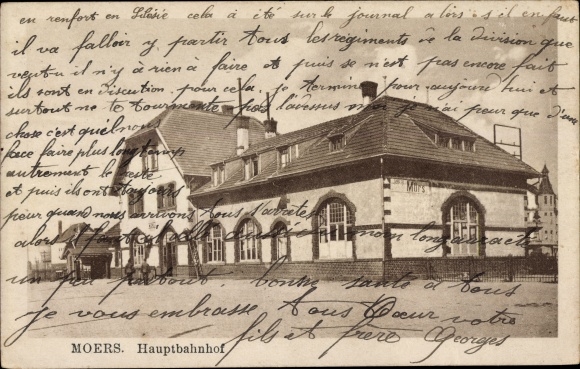 en renfort en Silésie cela à été sur le journal alors s'il en faut
il va falloir y partir tous les régiments de la division que
veut tu il n'y à rien à faire et puis se n'est pas encore fait
ils sont en discution pour cela je termine pour aujourd'hui et
surtout ne te tourmente pas là dessus moi je n'ai peur que d'une
chose c'est qu'il nous
fasse faire plus longtemp
autrement le reste
et puis ils ont toujours
peur quand nous arrivons tous
alors
un peu partout. bonne santé à tous
je vous embrasse Tous de Cœur votre
fils et frère Georges
MÖRS
MOERS. Hauptbahnhof